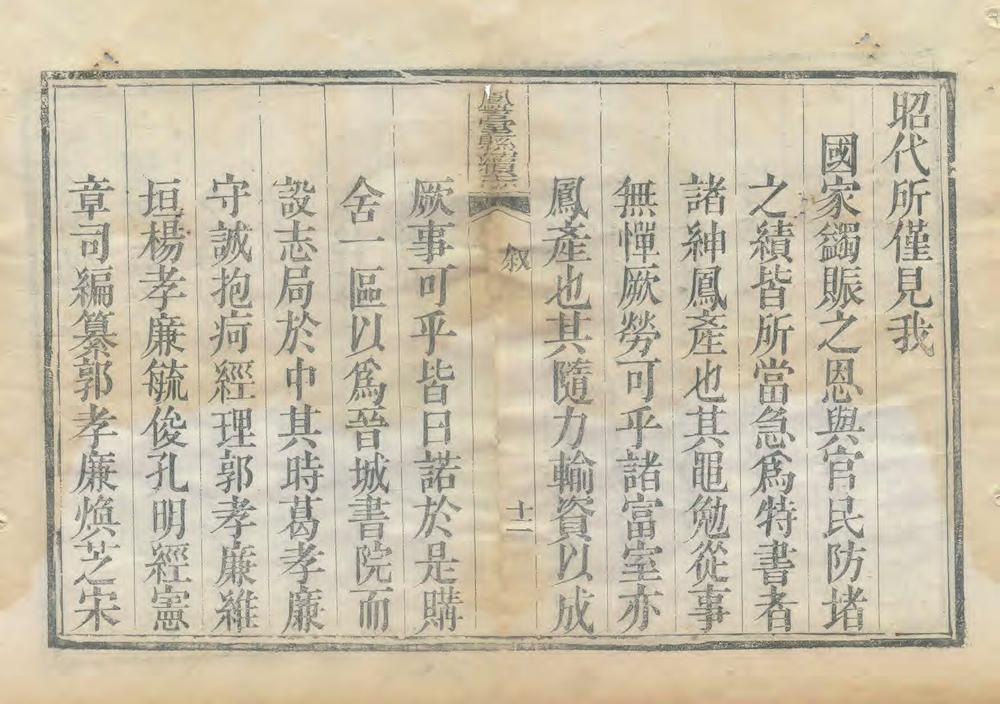 昭代所僅見我
國家蠲賑之恩與官民防堵
之績皆所當急爲特書者
諸紳鳳產也其黽勉從事
無憚厥勞可乎諸富室亦
鳳產也其隨力輸資以成
鳳臺縣續志
叙
十一
厥事可乎皆曰諾於是購
舍一區以爲晉城書院而
設志局於中其時葛孝廉
守誠抱疴經理郭孝廉維
垣楊孝廉毓俊孔明經憲
章司編纂郭孝廉煥芝宋